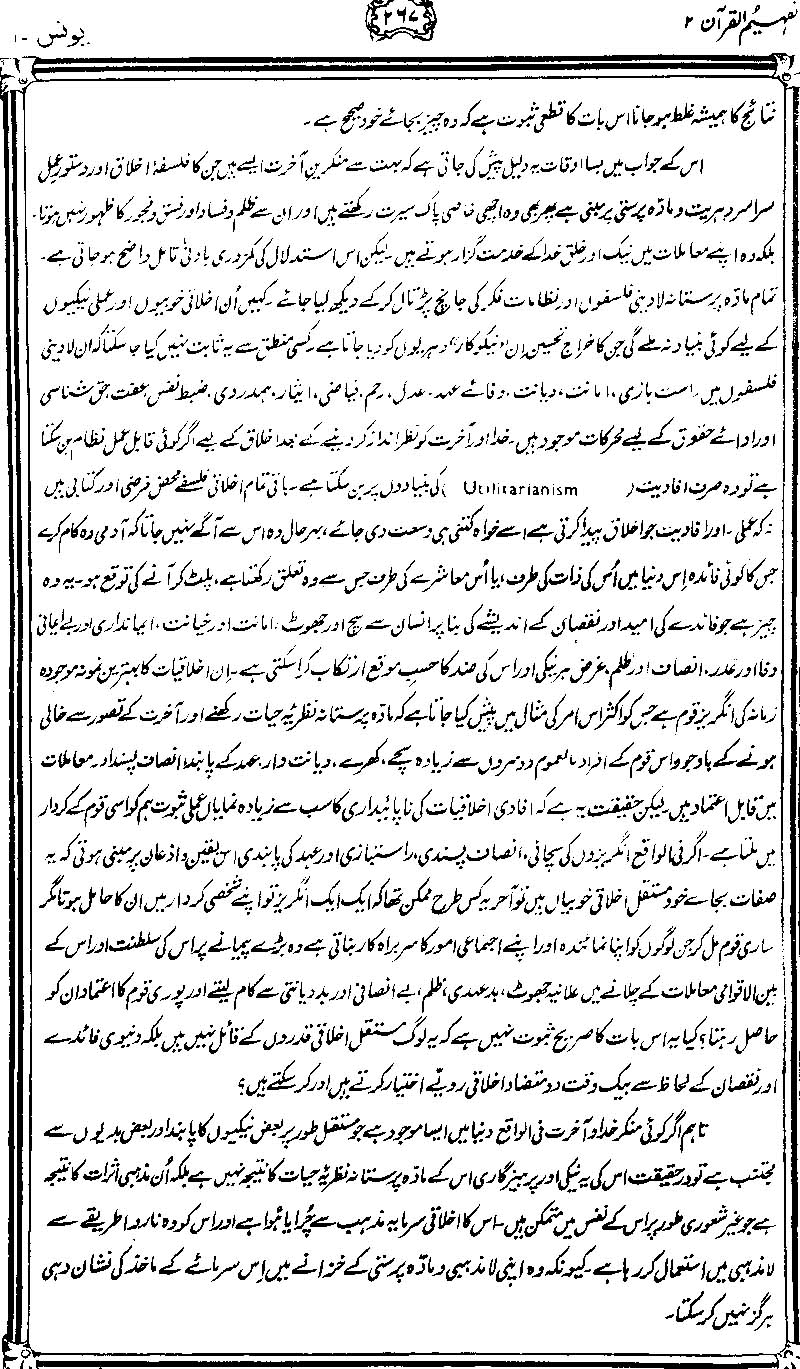 تفہیم القرآن ۲
۲۶۷
یونس ۱۰
نتائج کا ہمیشہ غلط ہو جانا اس بات کا قطعی ثبوت ہے کہ وہ چیز بجائے خود صحیح ہے۔
اس کے جواب میں بسا اوقات یہ دلیل پیش کی جاتی ہے کہ بہت سے منکرینِ آخرت ایسے ہیں جن کا فلسفۂ اخلاق اور دستورِ عمل
سراسر دہریت و مادّہ پرستی پر مبنی ہے پھر بھی وہ اچھی خاصی پاک سیرت رکھتے ہیں اور ان سے ظلم و فساد اور فسق و فجور کا ظہور نہیں ہوتا۔
بلکہ وہ اپنے معاملات میں نیک اور خلقِ خدا کے خدمت گزار ہوتے ہیں۔ لیکن اس استدلال کی کمزوری بادنیٰ تامل واضح ہو جاتی ہے۔
تمام مادّہ پرستانہ لادینی فلسفوں اور نظامات فکر کی جانچ پڑتال کر کے دیکھ لیا جائے۔ کہیں اُن اخلاقی خوبیوں اور عملی نیکیوں
کے لیے کوئی بنیاد نہ ملے گی جن کا خراجِ تحسین اِن ”نیکوکار“ دہریوں کو دیا جاتا ہے۔ کسی منطق سے یہ ثابت نہیں کیا جا سکتا کہ ان لادینی
فلسفوں میں راست بازی، امانت، دیانت، وفائے عہد، عدل، رحم، فیاضی، ایثار، ہمدردی، ضبطِ نفس، عفت، حق شناسی
اور ادائے حقوق کے لیے محرکات موجود ہیں۔ خدا اور آخرت کو نظر انداز کر دینے کے بعد اخلاق کے لیے اگر کوئی قابلِ عمل نظام بن سکتا
ہے تو وہ صرف افادیت (Utilitarianism) کی بنیادوں پر بن سکتا ہے۔ باقی تمام اخلاقی فلسفے محض فرضی اور کتابی ہیں
نہ کہ عملی۔ اور افادیت جو اخلاق پیدا کرتی ہے اسے خواہ کتنی ہی وسعت دی جائے، بہرحال وہ اس سے آگے نہیں جاتا کہ آدمی وہ کام کرے
جس کا کوئی فائدہ اِس دنیا میں اُس کی ذات کی طرف، یا اُس معاشرے کی طرف جس سے وہ تعلق رکھتا ہے، پلٹ کر آنے کی توقع ہو۔ یہ وہ
چیز ہے جو فائدے کی امید اور نقصان کے اندیشے کی بنا پر انسان سے سچ اور جھوٹ، امانت اور خیانت، ایمانداری اور بے ایمانی
وفا اور غدر، انصاف اور ظلم، غرض ہر نیکی اور اس کی ضد کا حسبِ موقع ارتکاب کرا سکتی ہے۔ اِن اخلاقیات کا بہترین نمونہ موجودہ
زمانہ کی انگریز قوم ہے جس کو اکثر اس امر کی مثال میں پیش کیا جاتا ہے کہ مادّہ پرستانہ نظریۂ حیات رکھنے اور آخرت کے تصور سے خالی
ہونے کے باوجود اس قوم کے افراد بالعموم دوسروں سے زیادہ سچے، کھرے، دیانت دار، عہد کے پابند، انصاف پسند اور معاملات
میں قابلِ اعتماد ہیں۔ لیکن حقیقت یہ ہے کہ افادی اخلاقیات کی ناپائیداری کا سب سے زیادہ نمایاں عملی ثبوت ہم کو اسی قوم کے کردار
میں ملتا ہے۔ اگر فی الواقع انگریزوں کی سچائی، انصاف پسندی، راستبازی اور عہد کی پابندی اس یقین و اذعان پر مبنی ہوتی کہ یہ
صفات بجائے خود مستقل اخلاقی خوبیاں ہیں تو آخر یہ کس طرح ممکن تھا کہ ایک ایک انگریز تو اپنے شخصی کردار میں ان کا حامل ہوتا مگر
ساری قوم مل کر جن لوگوں کو اپنا نمائندہ اور اپنے اجتماعی امور کا سربراہ کار بناتی ہے وہ بڑے پیمانے پر اس کی سلطنت اور اس کے
بین الاقوامی معاملات کے چلانے میں علانیہ جھوٹ، بدعہدی، ظلم، بے انصافی اور بددیانتی سے کام لیتے اور پوری قوم کا اعتماد ان کو
حاصل رہتا؟ کیا یہ اس بات کا صریح ثبوت نہیں ہے کہ یہ لوگ مستقل اخلاقی قدروں کے قائل نہیں ہیں بلکہ دنیوی فائدے
اور نقصان کے لحاظ سے بیک وقت دو متضاد اخلاقی رویّے اختیار کرتے ہیں اور کر سکتے ہیں؟
تاہم اگر کوئی منکرِ خدا و آخرت فی الواقع دنیا میں ایسا موجود ہے جو مستقل طور پر بعض نیکیوں کا پابند اور بعض بدیوں سے
مجتنب ہے تو درحقیقت اس کی یہ نیکی اور پرہیزگاری اس کے مادّہ پرستانہ نظریۂ حیات کا نتیجہ نہیں ہے بلکہ اُن مذہبی اثرات کا نتیجہ
ہے جو غیر شعوری طور پر اس کے نفس میں متمکن ہیں۔ اس کا اخلاقی سرمایہ مذہب سے چُرایا ہوا ہے اور اس کو وہ ناروا طریقے سے
لامذہبی میں استعمال کر رہا ہے۔ کیونکہ وہ اپنی لامذہبی و مادّہ پرستی کے خزانے میں اِس سرمائے کے ماخذ کی نشان دہی
ہرگز نہیں کر سکتا۔